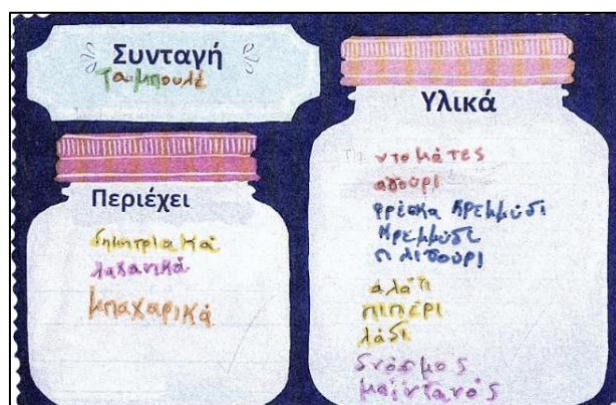 Συνταγή
Ταμπουλέ
Περιέχει
δημητριακά
λαχανικά
μπαχαρικά
Υλικά
ντομάτες
αγούρι
φρέσκα κρεμμύδι
κρεμμύδι
πλιγούρι
αλάτι
πιπέρι
λάδι
δυόσμος
μαϊντανός